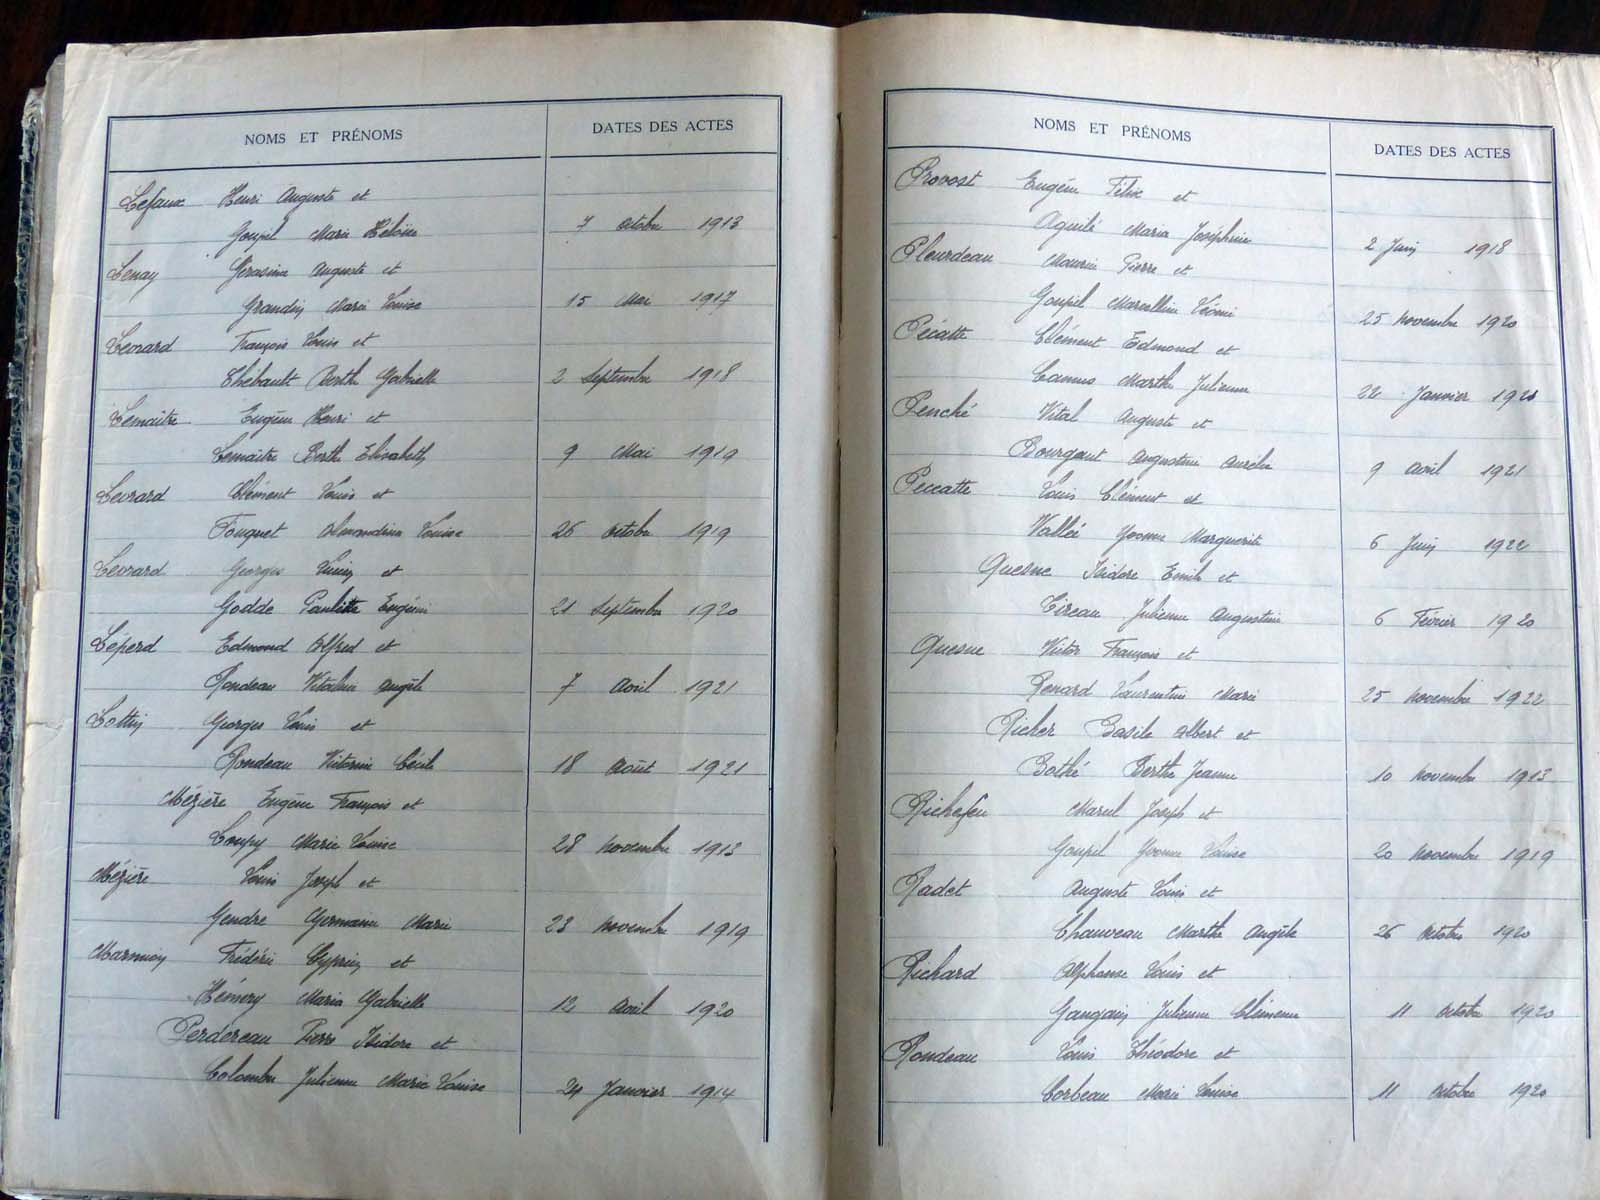 NOMS ET PRÉNOMS DATES DES ACTES
Lefaux Henri Auguste et
Goupil Marie Héloïse 7 Octobre 1913
Lenay Gerasime Auguste et
Grandin Marie Louise 15 Mai 1917
Levrard François Louis et
Thébault Berthe Gabrielle 2 Septembre 1918
Lemaître Eugène Henri et
Lemaître Berthe Elisabeth 9 Mai 1919
Levrard Clément Louis et
Fouquet Amandine Louise 26 Octobre 1919
Levrard Georges Lucien et
Godde Paulette Eugénie 21 Septembre 1920
Léperd Edmond Alfred et
Rondeau Vitaline Angèle 7 Avril 1921
Lottin Georges Louis et
Rondeau Victorine Cécile 18 Août 1921
Mézière Eugène François et
Loupy Marie Louise 28 Novembre 1913
Mézière Louis Joseph et
Gendre Germaine Marie 23 Novembre 1919
Marmion Frédéric Cyprien et
Hémery Maria Gabrielle 12 Avril 1920
Perdereau Pierre Isidore et
Colombu Julienne Marie Louise 24 Janvier 1914
NOMS ET PRÉNOMS DATES DES ACTES
Provost Eugène Félix et
Aguilé Maria Joséphine 2 Juin 1918
Pleurdeau Maurice Pierre et
Goupil Marcelline Léonie 25 Novembre 1920
Pécatte Clément Edmond et
Camus Marthe Julienne 22 Janvier
Penché Vital Auguste et
Bourgaut Augustine Aurélie 9 Avril 1921
Peccatte Louis Clément et
Vallée Yvonne Marguerite 6 Juin 1922
Quesne Isidore Emile et
Cireau Julienne Augustine 6 Février 1920
Quesne Victor François et
Renard Laurentine Marie 25 Novembre 1922
Richer Basile Albert et
Bothé Berthe Jeanne 10 Novembre 1913
Richefeu Marcel Joseph et
Goupil Yvonne Louise 20 Novembre 1919
Radet Auguste Louis et
Chauveau Marthe Angèle 26 Octobre 1920
Richard Alphonse Louis et
Gangain Julienne Clémence 11 Octobre 1920
Rondeau Louis Théodore et
Corbeau Marie Louise 11 Octobre 1920